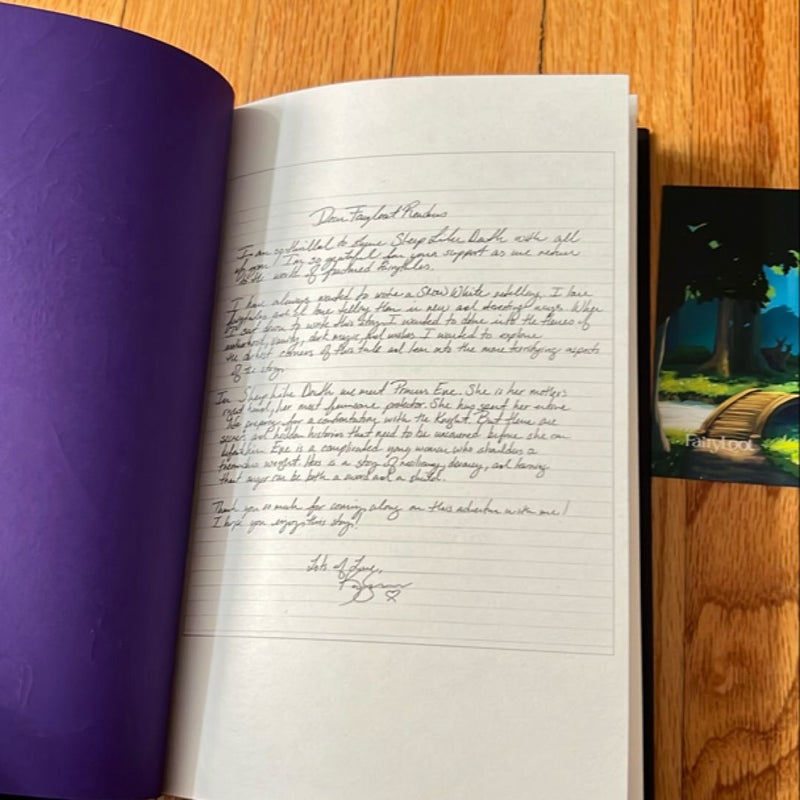 Dear Fairyloot Readers
I am so thrilled to share Sleep Like Death with all
of you! I'm so grateful for your support as we return
to the world of fractured fairytales.
I have always wanted to write a Snow White retelling. I love
fairytales and I love telling them in new and interesting ways. When
I sat down to write this story I wanted to delve into the themes of
motherhood, vanity, dark magic, and wishes. I wanted to explore
the darkest corners of this tale and lean into the more terrifying aspects
of the story.
In Sleep Like Death we meet Princess Eve. She is her mother's
right hand, her most fearsome protector. She has spent her entire
life preparing for a confrontation with the Knight. But there are
secrets and hidden histories that need to be uncovered before she can
defeat him. Eve is a complicated young woman who shoulders a
tremendous weight. Hers is a story of resiliency, and learning
that anger can be both a sword and a shield.
Thank you so much for coming along on this adventure with me!
I hope you enjoy this story!
Lots of Love,
FairyLoot